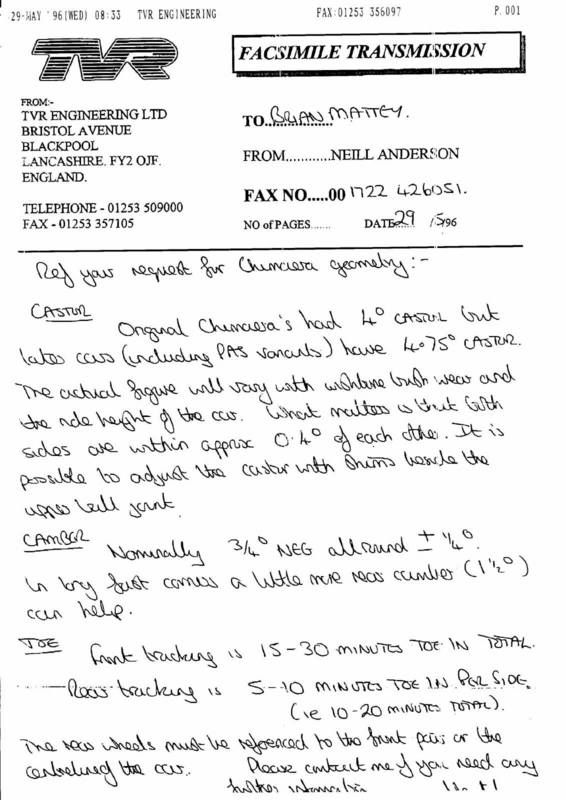 29-MAY '96(WED) 08:33 TVR ENGINEERING FAX:01253 356097 P.001
TVR
FACSIMILE TRANSMISSION
FROM:-
TVR ENGINEERING LTD
BRISTOL AVENUE
BLACKPOOL
LANCASHIRE. FY2 OJF.
ENGLAND.
TELEPHONE - 01253 509000
FAX - 01253 357105
TO..BRIAN MATTEY.
FROM............NEILL ANDERSON
FAX NO.....00 1722 426051.
NO of PAGES....... DATE 29 /5/96
Ref your request for Chimaera geometry:-
CASTOR
Original Chimaera's had 4° CASTOR but
later cars (including PAS variants) have 4.75° CASTOR.
The actual figure will vary with wishbone bush wear and
the ride height of the car. What matters is that both
sides are within approx 0.4° of each other. It is
possible to adjust the castor with shims beside the
upper ball joint.
CAMBER
Nominally 3/4° NEG allround ± 1/4°.
In very fast corners a little more rear camber (1 1/2°)
can help.
TOE
Front tracking is 15-30 MINUTES TOE IN TOTAL.
Rear tracking is 5-10 MINUTES TOE IN PER SIDE.
(ie 10-20 MINUTES TOTAL).
The rear wheels must be referenced to the front pair or the
centreline of the car. Please contact me if you need any
further information